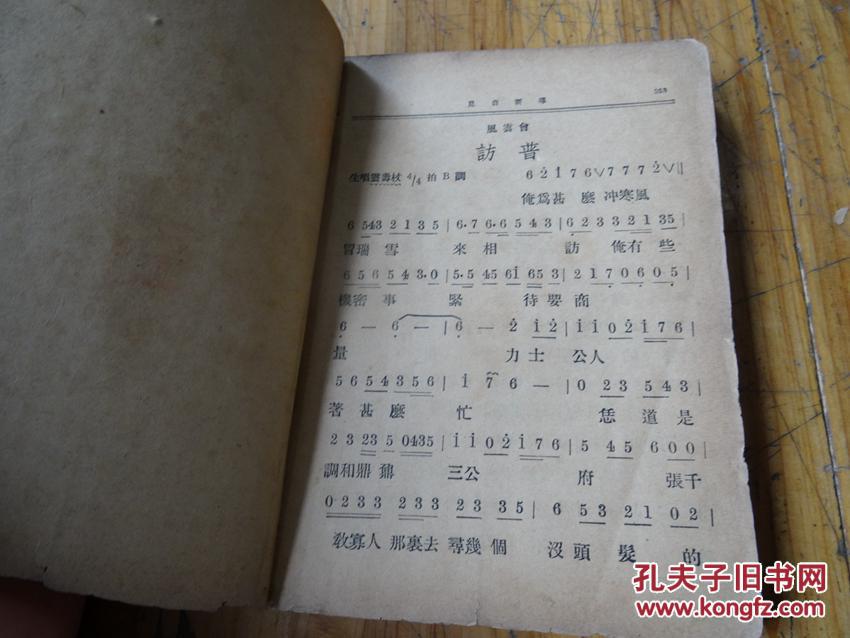 導雲前見 253
風雲會
訪普
生唱雲壽杖 4/4 拍 B調 6 2 1 7 6 V 7 7 7 2 V ||
俺爲甚麼冲寒風
6 543 2 1 3 5 | 6· 7 6· 6 5 4 3 | 6 2 3 3 2 1 35
冒瑞雪來相訪俺有些
6 5 6 5 4 3· 0 | 5· 5 45 61 65 3 | 2 1 7 0 6 0 5
機密事緊待要商
6 — 6 — | 6 — 2 1 2 | 1 1 0 2 1 7 6 |
量 力士公人
5 6 5 4 3 5 6 | 1 7 6 — | 0 2 3 5 4 3 |
著甚麼忙 恁道是
2 3 23 5 0435 | 1 1 0 2 1 7 6 | 5 4 5 6 0 0 |
調和鼎鼐三公府 張千
0 2 3 3 2 3 3 2 3 3 5 | 6 5 3 2 1 0 2 |
敎寡人那裏去尋幾個沒頭髮的
孔夫子旧书网
www.kongfz.com